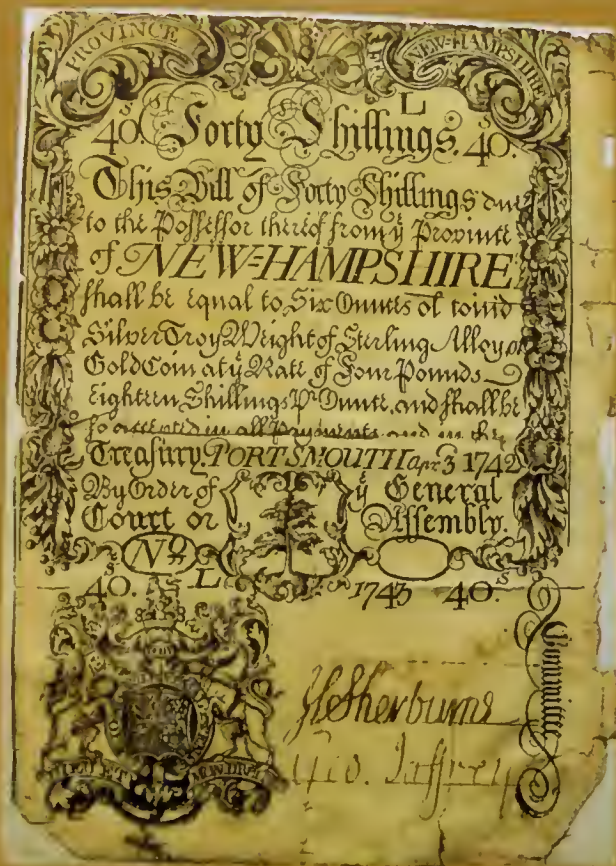 PROVINCE OF NEW=HAMPSHIRE
L
40.S Forty Shillings. 40.S
This Bill of Forty Shillings due
to the Possessor thereof from yͤ Province
of NEW=HAMPSHIRE
shall be equal to Six Ounces of coind
Silver Troy Weight of Sterling Alloy or
Gold Coin at yͤ Rate of Four Pounds
Eighteen Shillings Pr Ounce, and shall be
so accepted in all Payments and in the
Treasury. PORTSMOUTH Apr 3 1742
By Order of yͤ General
Court or Assembly.
No
40.S L 1743 40.S
Committee
DIEU ET MON DROIT
H Sherburne
Geo. Jaffrey